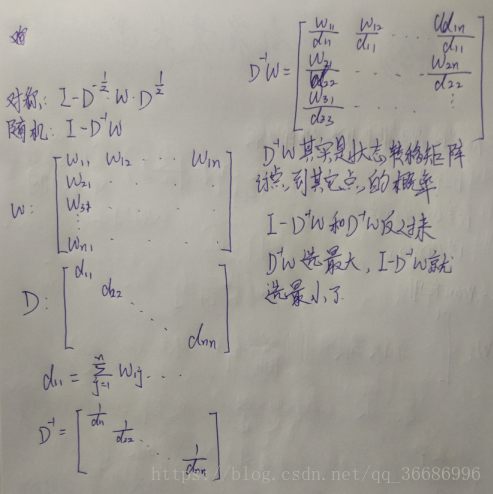 对称: I-D^{-1/2}·W·D^{1/2}
随机: I-D^{-1}W
W: [ W11 W12 ··· W1n
W21 · · ·
W31 · · ·
⋮
Wn1 · · · ]
D: [ d11
d22
⋱
dnn ]
d11 = ∑_{j=1}^{n} W1j ···
D^{-1} = [ 1/d11
1/d22
⋱
1/dnn ]
D^{-1}W = [ W11/d11 W12/d11 ···· d1n/d11
W21/d22 · · · W2n/d22
W31/d23 ⋮ ]
D^{-1}W其实是状态转移矩阵
点到其它点的概率
I-D^{-1}W和D^{-1}W反过来
D^{-1}W选最大，I-D^{-1}W就
选最小了
https://blog.csdn.net/qq_36686996